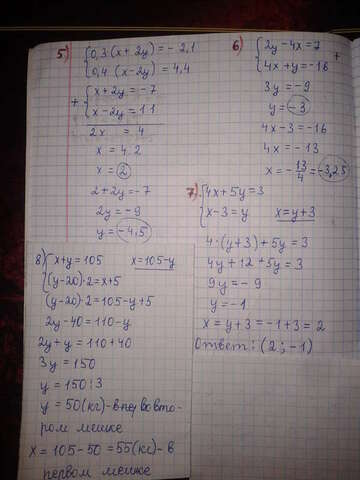 5) {0,3(x+2y)=-2,1
{0,4(x-2y)=4,4
+ {x+2y=-7
{x-2y=11
2x = 4
x = 4:2
x = 2
2+2y=-7
2y=-9
y=-4,5
6) {2y-4x=7 +
{4x+y=-16
3y = -9
y = -3
4x-3=-16
4x = -13
x = -13/4 = -3,25
7) {4x+5y=3
{x-3=y x=y+3
4·(y+3)+5y=3
4y+12+5y=3
9y=-9
y=-1
x=y+3=-1+3=2
Ответ: (2;-1)
8) {x+y=105 x=105-y
{(y-20)·2=x+5
(y-20)·2=105-y+5
2y-40=110-y
2y+y=110+40
3y=150
y=150:3
y=50(кг)-в во вто-
ром мешке
x=105-50=55(кг)-в
первом мешке